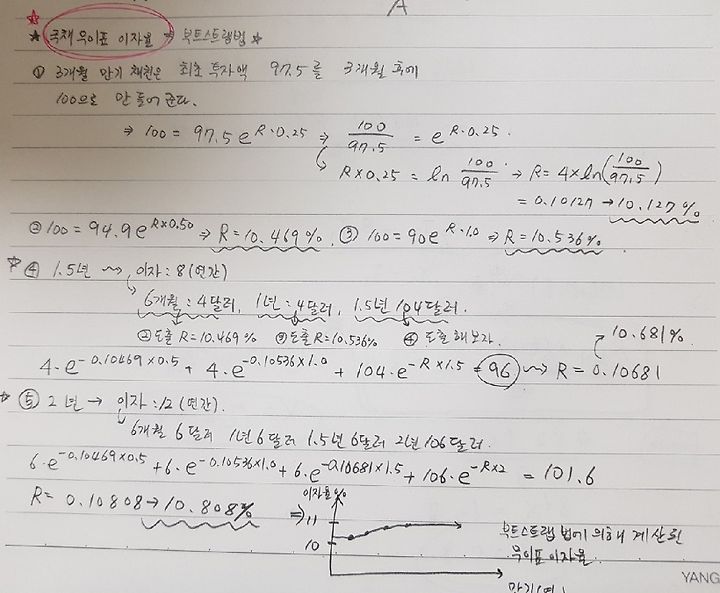 A
★ 국채 무이표 이자율 → 부트스트랩법 ★
① 3개월 만기 채권은 최초 투자액 97.5를 3개월 후에
100으로 만들어 준다.
⇒ 100 = 97.5 e^{R·0.25} ⇒ 100/97.5 = e^{R·0.25}.
R×0.25 = ln 100/97.5 → R= 4×ln(100/97.5)
= 0.10127 → 10.127%
② 100 = 94.9e^{R×0.50} ⇒ R=10.469%. ③ 100=90e^{R·1.0} ⇒ R=10.536%.
★ ④ 1.5년 ~→ 이자: 8(연간)
6개월: 4달러, 1년: 4달러, 1.5년 104달러.
②도출 R=10.469% ③도출 R=10.536% ④ 도출 해보자.
10.681%.
4·e^{-0.10469×0.5} + 4·e^{-0.10536×1.0} + 104·e^{-R×1.5} = 96 ~→ R = 0.10681
★ ⑤ 2년 → 이자:12(연간).
6개월 6달러 1년 6달러 1.5년 6달러 2년 106달러.
6·e^{-0.10469×0.5} + 6·e^{-0.10536×1.0} + 6·e^{-0.10681×1.5} + 106·e^{-R×2} = 101.6
R= 0.10808 → 10.808% ⇒
이자율%
11
10
부트스트랩 법에 의해 계산된
무이표 이자율
만기(연)
YANG